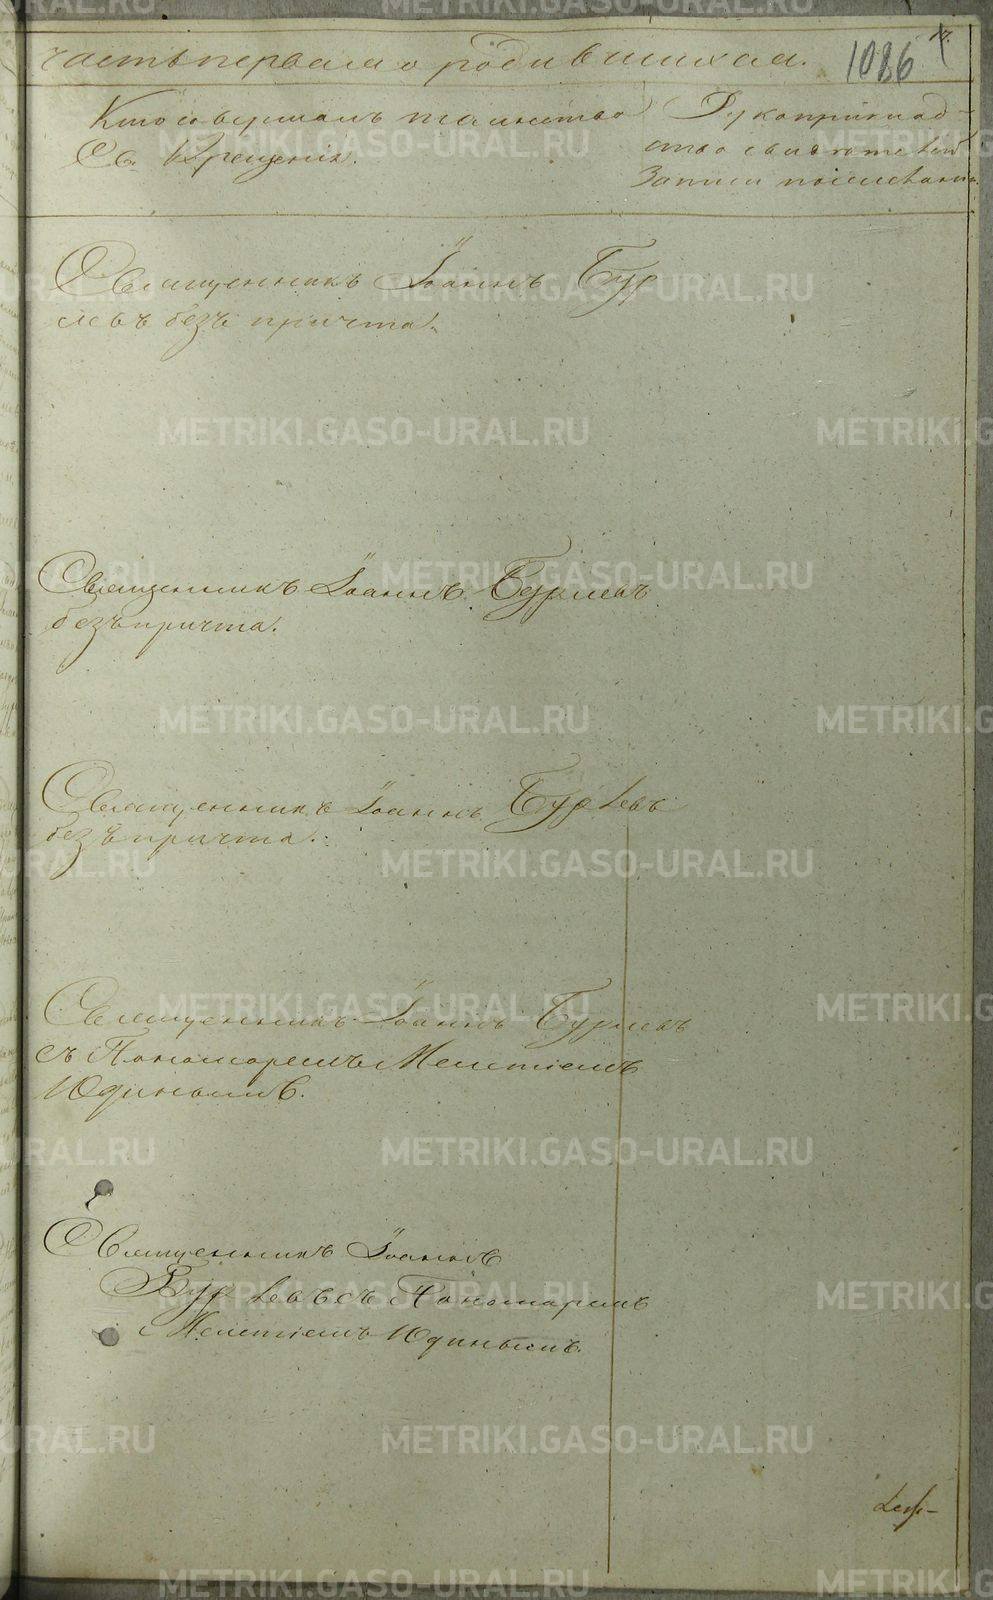 часть первая о родившихся.
1086
17.
Кто совершалъ таинство
Св. Крещенія.
Рукоприклад-
ство свидѣтелей
записи по желанію.
Священникъ Іоаннъ Бур
левъ безъ причта.
Священникъ Іоаннъ Бурлевъ
безъ причта.
Священникъ Іоаннъ Бурлевъ
безъ причта.
Священникъ Іоаннъ Бурлевъ
съ Пономаремъ Мелетіемъ
Юдинымъ.
Священникъ Іоаннъ
Бурлевъ съ Пономаремъ
Мелетіемъ Юдинымъ.
METRIKI.GASO-URAL.RU